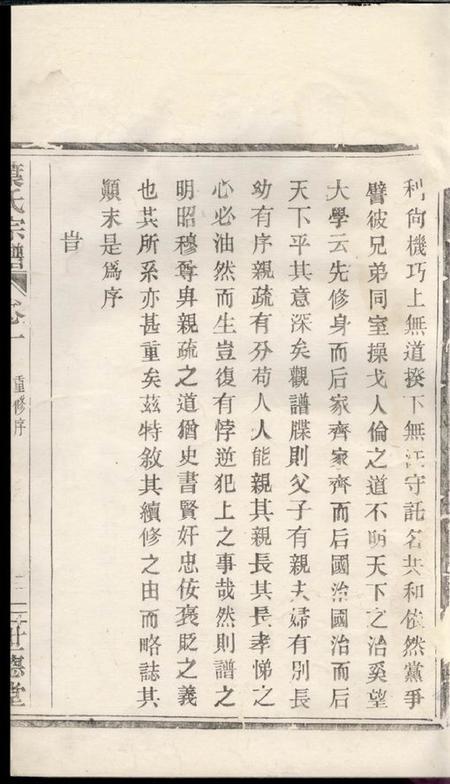 利尙機巧上無道揆下無法守託名共和依然黨爭
譬彼兄弟同室操戈人倫之道不明天下之治奚望
大學云先修身而后家齊家齊而后國治國治而后
天下平其意深矣觀譜牒則父子有親夫婦有別長
幼有序親疏有分苟人人能親其親長其長孝悌之
心必油然而生豈復有悖逆犯上之事哉然則譜之
明昭穆尊與親疏之道猶史書賢奸忠佞褒貶之義
也其所系亦甚重矣茲特敘其續修之由而略誌其
顚末是爲序
旹
葉氏宗譜
卷一
重修序
世德堂